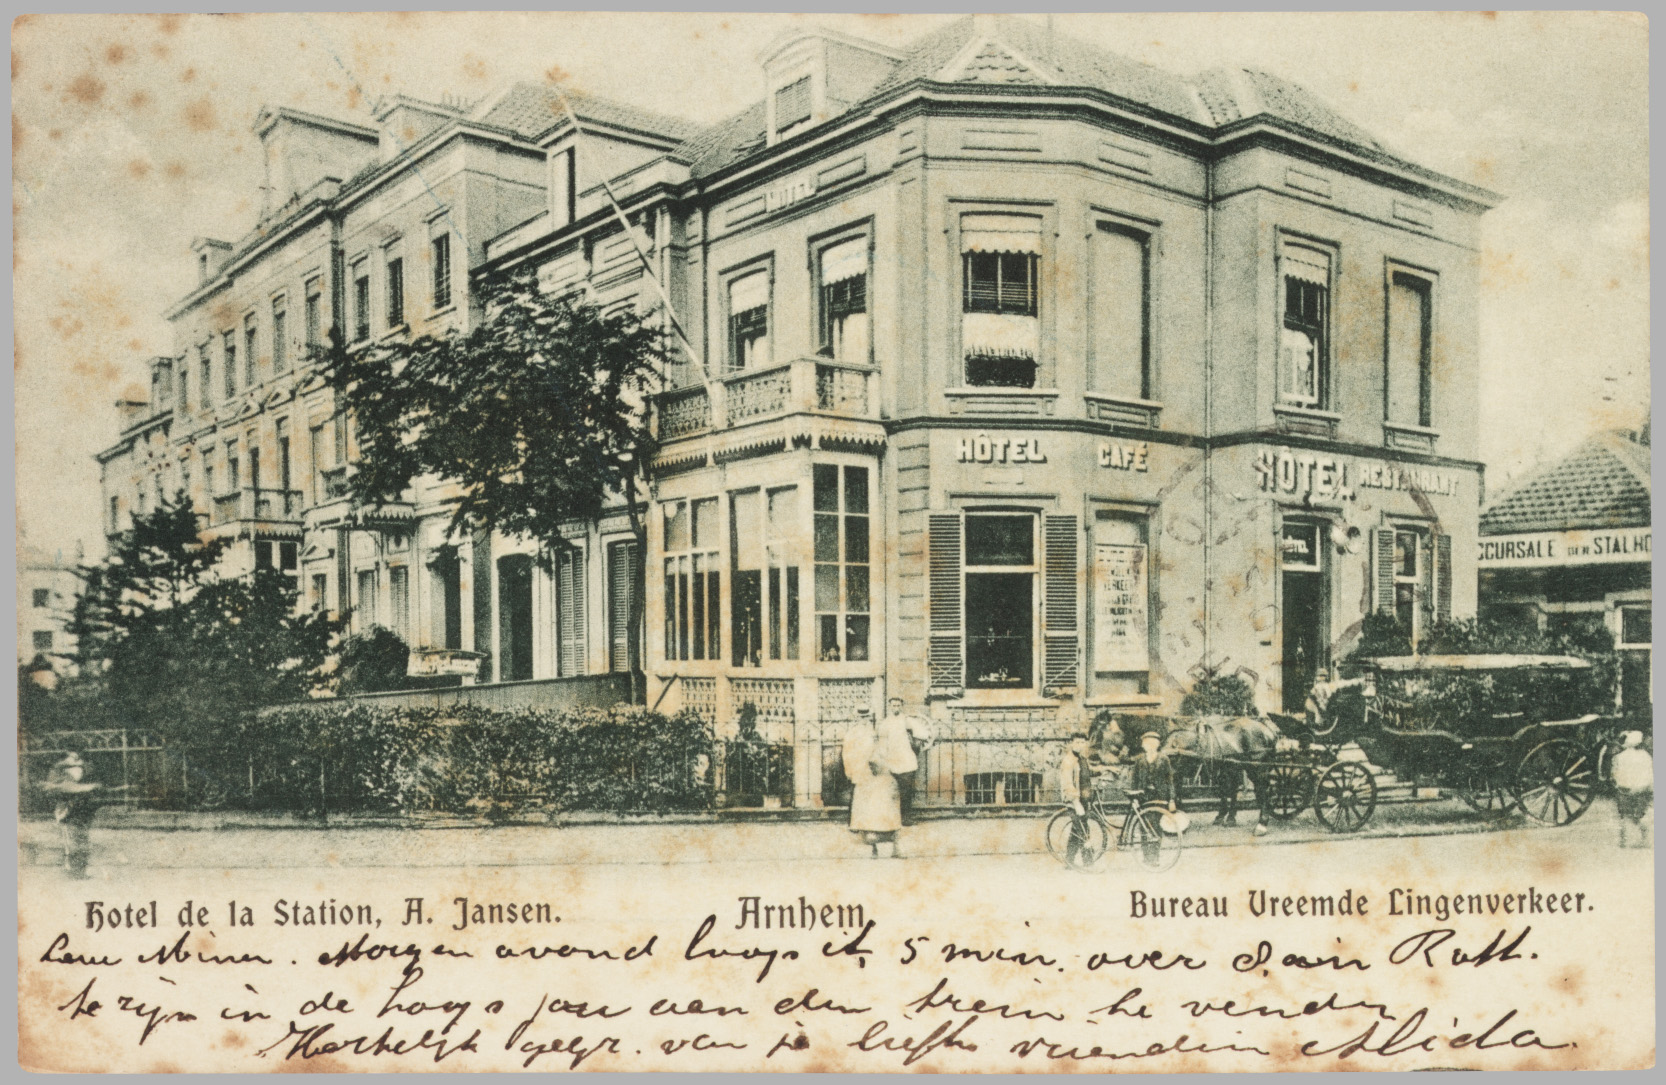 HOTEL
HÔTEL CAFÉ HÔTEL RESTAURANT
CCURSALE DER STALHO
Hotel de la Station, A. Jansen. Arnhem Bureau Vreemde Lingenverkeer.
Morgen avond hoop ik 5 min. over 8. in Rott.
te zijn in de hoop jou aan den trein te vinden
Hartelijk gegr. van je liefh. vriendin Alida.